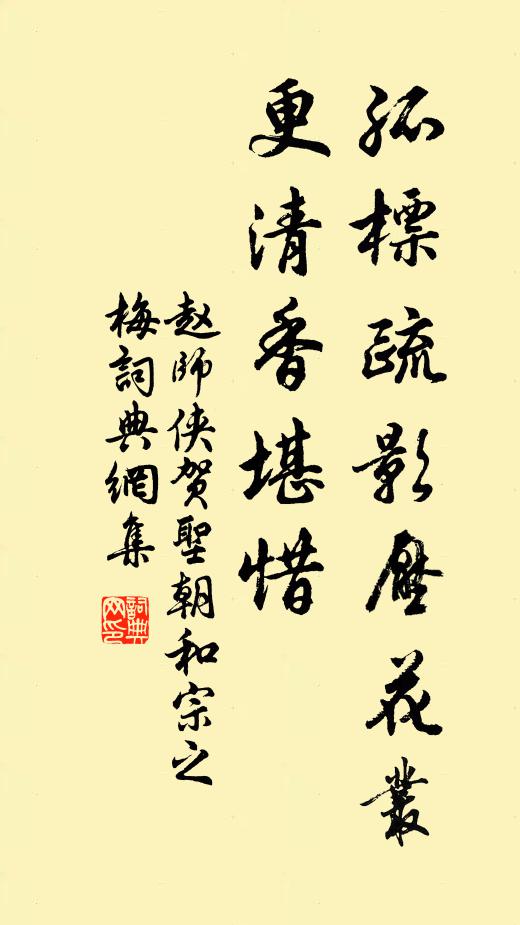 孤標疏影壓花叢
更清香堪惜
赵師俠賀聖朝和宗之
梅詞典網集
詞典
网印